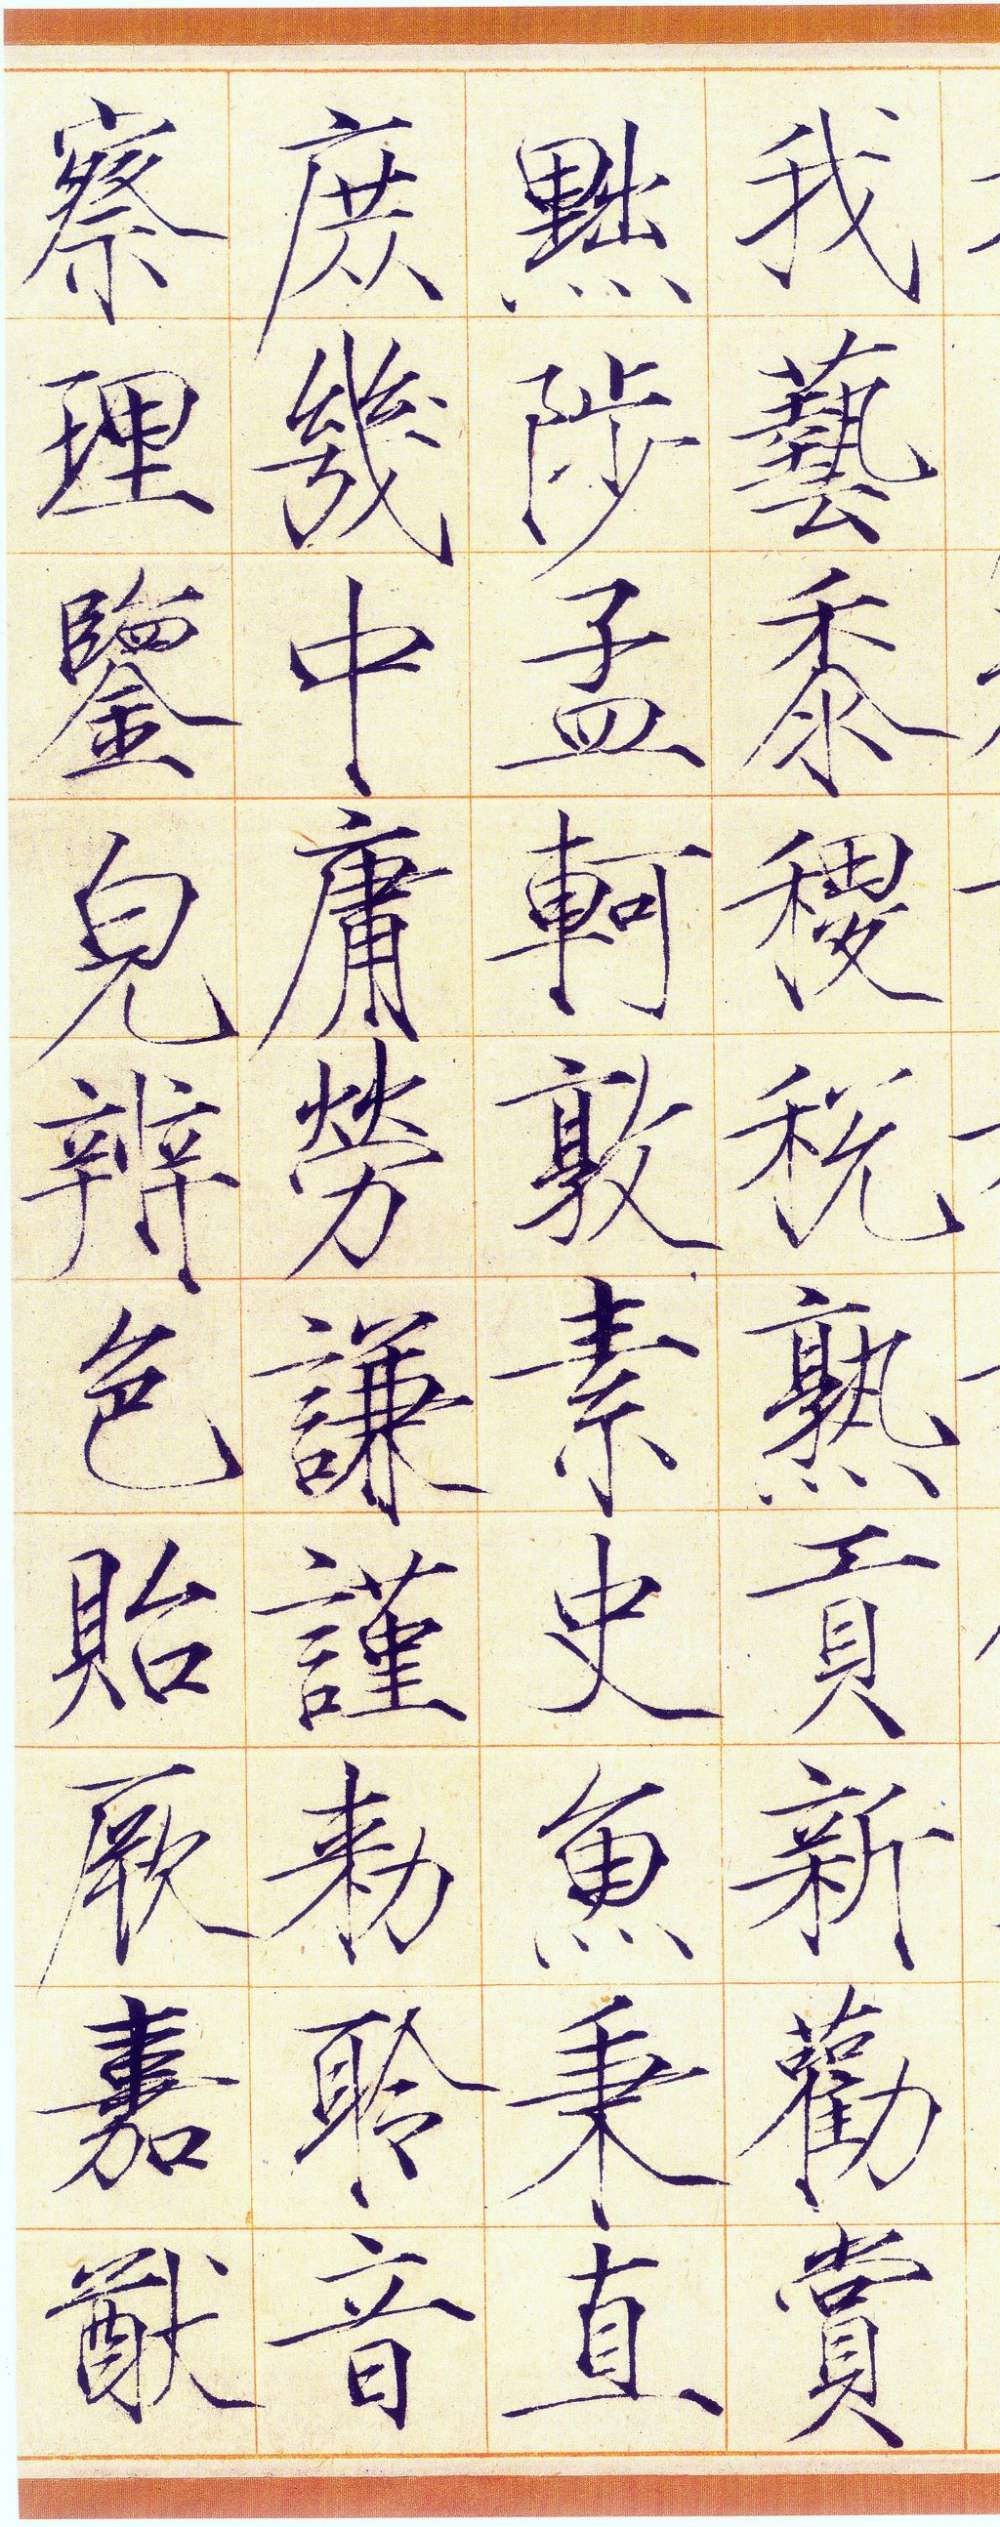 我藝黍稷稅熟貢新勸賞
黜陟孟軻敦素史魚秉直
庶幾中庸勞謙謹勅聆音
察理鑒皃辨色貽厥嘉猷